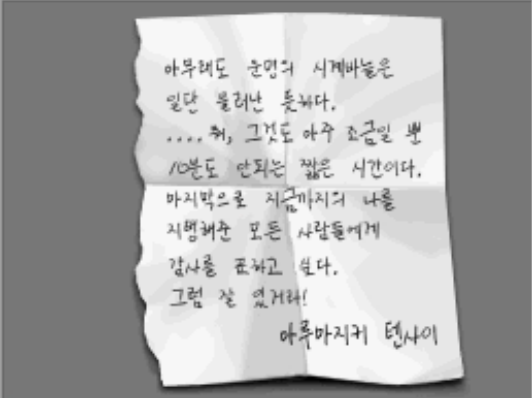 아무래도 운명의 시계바늘은
일단 물러난 듯하다.
.... 뭐, 그것도 아주 조금일 뿐
10분도 안되는 짧은 시간이다.
마지막으로 지금까지의 나를
지탱해준 모든 사람들에게
감사를 표하고 싶다.
그럼 잘 있거라!
아루마지키 텐사이